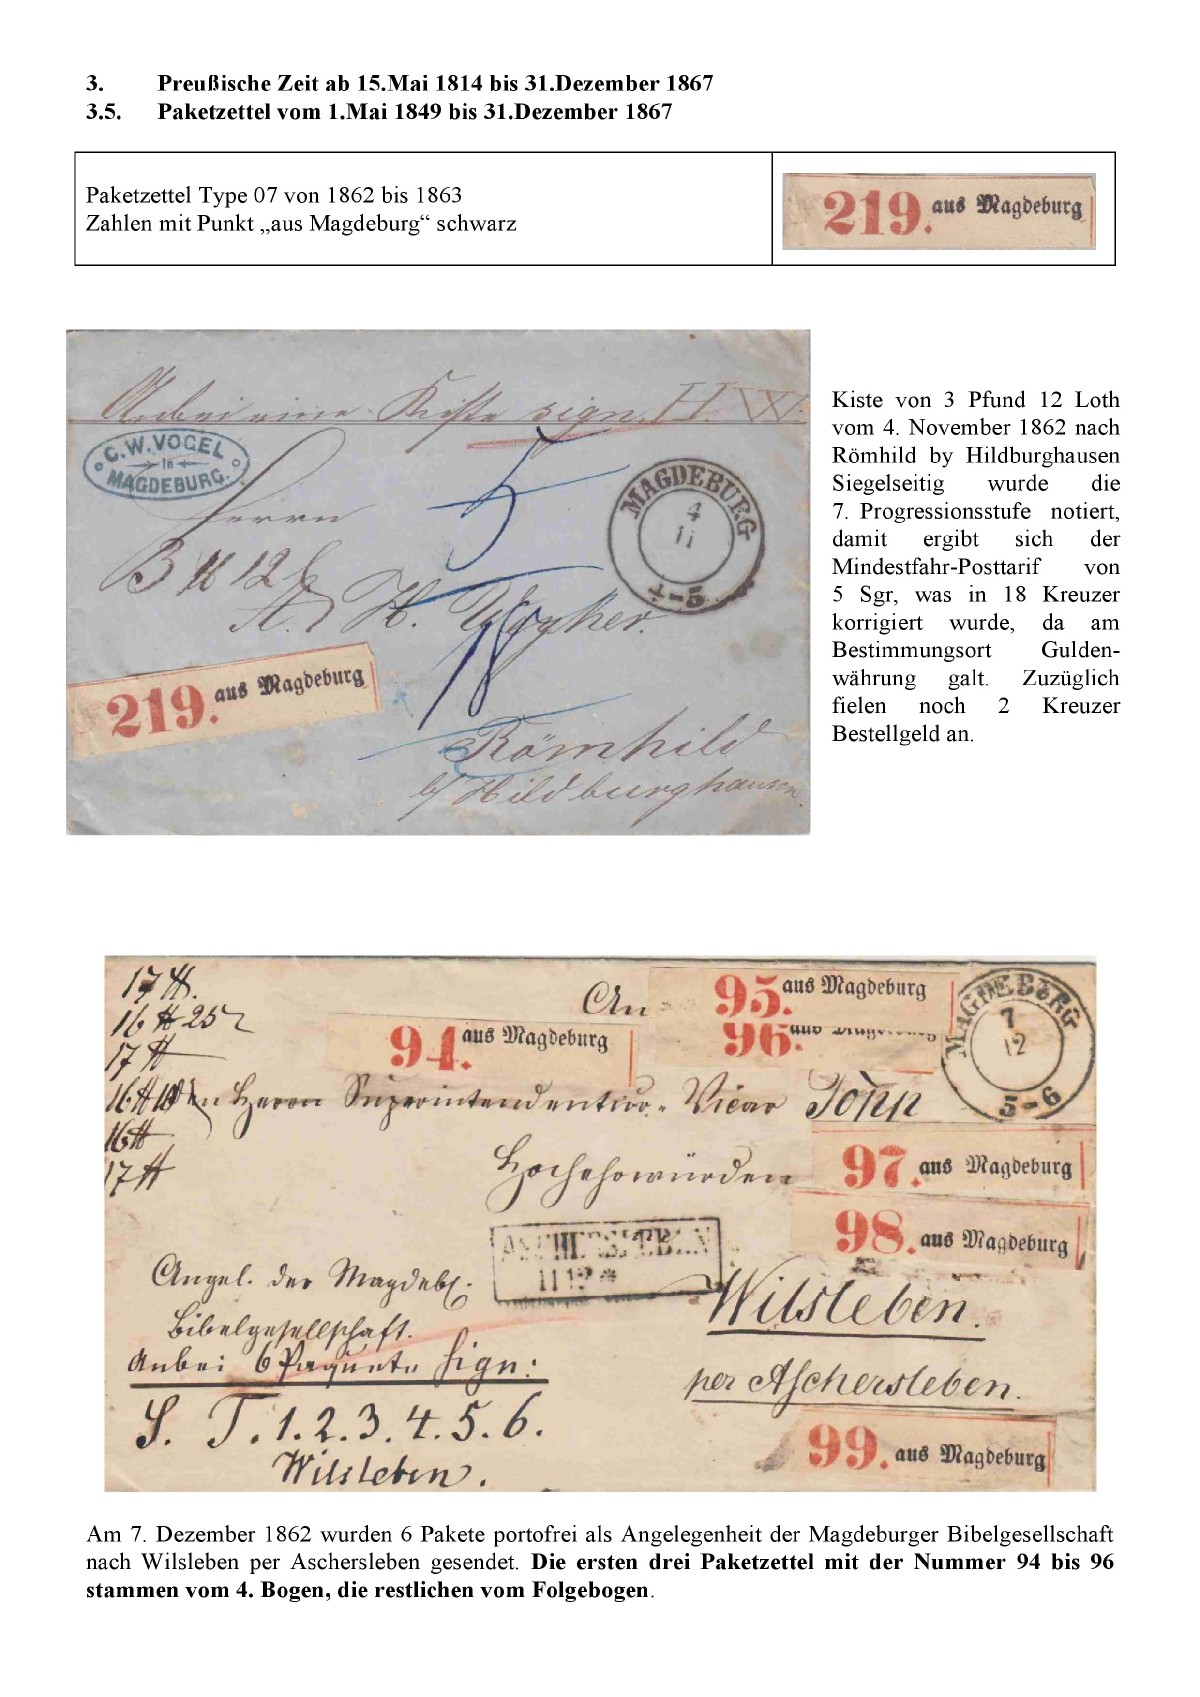 3. Preußische Zeit ab 15.Mai 1814 bis 31.Dezember 1867
3.5. Paketzettel vom 1.Mai 1849 bis 31.Dezember 1867
Paketzettel Type 07 von 1862 bis 1863
Zahlen mit Punkt „aus Magdeburg“ schwarz
219. aus Magdeburg
Anbei eine Kiste sign. H.
C.W.VOGEL
in
MAGDEBURG.
Herrn
MAGDEBURG
4
11
4-5
5
18
219. aus Magdeburg
Römhild
b/Hildburghausen.
Kiste von 3 Pfund 12 Loth
vom 4. November 1862 nach
Römhild by Hildburghausen
Siegelseitig wurde die
7. Progressionsstufe notiert,
damit ergibt sich der
Mindestfahr-Posttarif von
5 Sgr, was in 18 Kreuzer
korrigiert wurde, da am
Bestimmungsort Gulden-
währung galt. Zuzüglich
fielen noch 2 Kreuzer
Bestellgeld an.
17 ℔.
16 ℔ 25
17 ℔
16 ℔
16 ℔
17 ℔
An
94. aus Magdeburg
95. aus Magdeburg
96. aus Magdeburg
MAGDEBURG
7
12
5-6
den Herrn Superintendentur-Vicar Topp
Hochehrwürden
97. aus Magdeburg
98. aus Magdeburg
ASCHERSLEBEN
11 12 *
Angel. der Magdeb.
Bibelgesellschaft.
Anbei 6 Paquete sign:
S. T. 1. 2. 3. 4. 5. 6.
Wilsleben.
Wilsleben.
per Aschersleben.
99. aus Magdeburg
Am 7. Dezember 1862 wurden 6 Pakete portofrei als Angelegenheit der Magdeburger Bibelgesellschaft
nach Wilsleben per Aschersleben gesendet. Die ersten drei Paketzettel mit der Nummer 94 bis 96
stammen vom 4. Bogen, die restlichen vom Folgebogen.